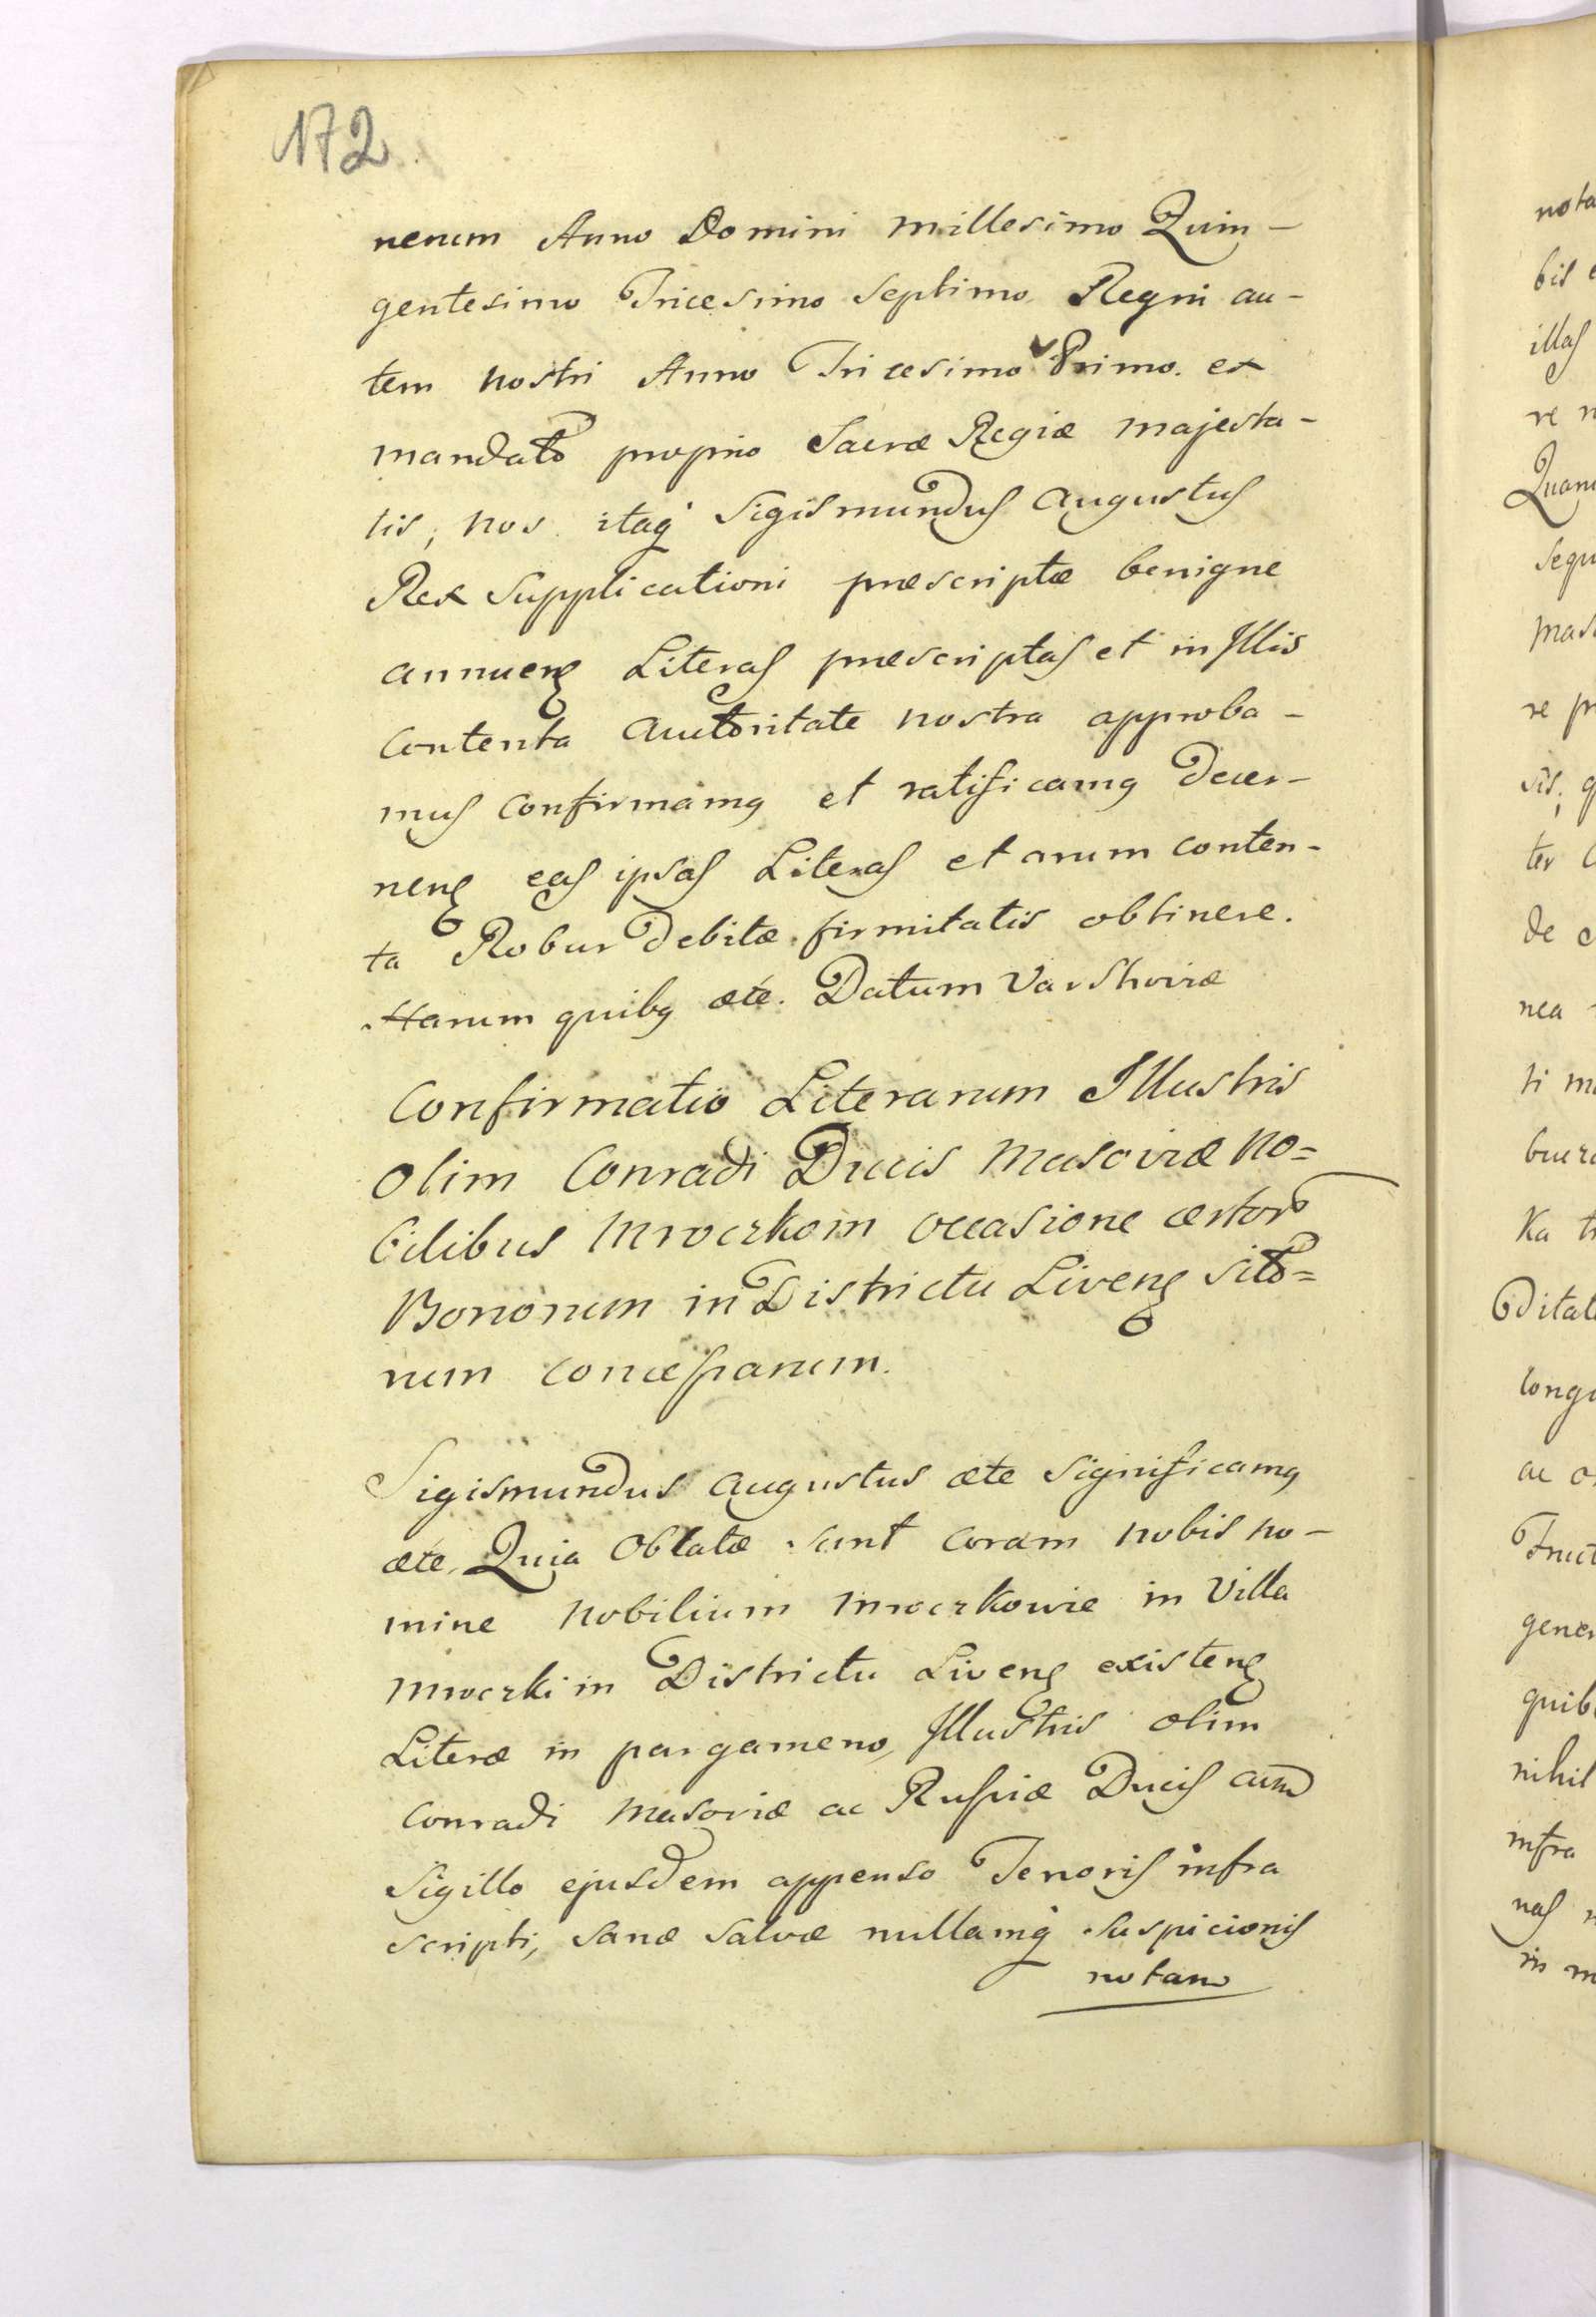 172
nerum Anno Domini millesimo Quin-
gentesimo Tricesimo septimo Regni au-
tem nostri Anno Tricesimo Primo. ex
mandato proprio Sacræ Regiæ majesta-
tis, nos itaq' Sigismundus Augustus
Rex Supplicationi præscriptæ benigne
annuens Literas præscriptas et in Illis
Contenta Autoritate nostra approba-
mus confirmamq et ratificamq Decer-
nens eas ipsas Literas et arum conten-
ta Robur Debitæ firmitatis obtinere.
Harum quibq ætc. Datum Varshoviæ
Confirmatio Literarum Illustris
olim Conradi Ducis Masoviæ No=
bilibus Mroczkom occasione certor
Bonorum in Districtu Livens sito=
rum concessarum.
Sigismundus Augustus ætc Significamq
ætc, Quia Oblatæ sunt coram nobis no-
mine Nobilium Mroczkowie in Villa
Mroczki in Districtu Livens existens
Literæ in pargameno, Illustris olim
Conradi Masoviæ ac Russiæ Ducis cum
Sigillo ejusdem appenso Tenoris infra
scripti, sanæ salvæ nullamq' suspicionis
notam
nota
bis
illas
re
Quam
sequ
mas
re pr
sis,
ter
de
nea
ti
Ka
Ditat
long
ac
Fruct
gener
quib
nihil
infra
nas
in